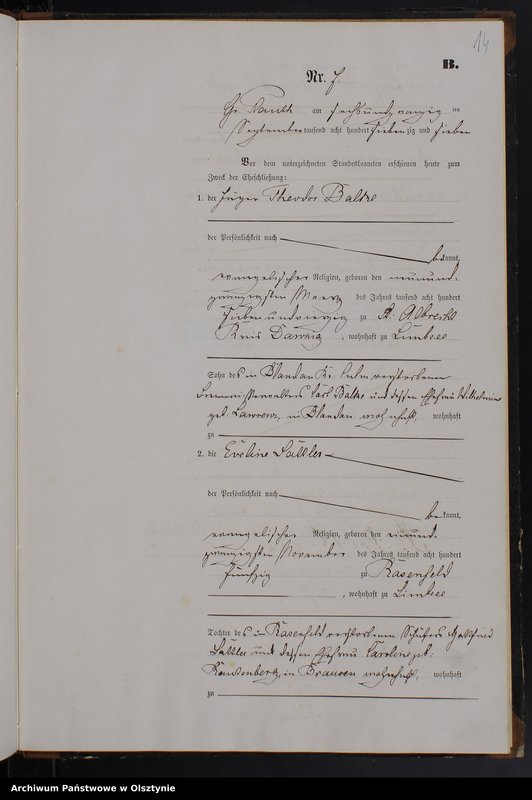 14
B.
Nr. 7.
am sechsundzwanzig ten
September tausend acht hundert siebenzig und sieben
Vor dem unterzeichneten Standesbeamten erschienen heute zum
Zweck der Eheschließung:
1. der Theodor Baltke
der Persönlichkeit nach
bekannt,
evangelischer Religion, geboren den neunund-
zwanzigsten Maerz des Jahres tausend acht hundert
siebenundvierzig zu St. Albrecht
Kreis Danzig, wohnhaft zu Limbsee
Sohn des in Blandau Kr. Culm verstorbenen
Carl Baltke und dessen Ehefrau Wilhelmine
geb. Lawrenz, in Blandau wohnhaft, wohnhaft
zu
2. die Eveline Sattler
der Persönlichkeit nach
bekannt,
evangelischer Religion, geboren den einund-
zwanzigsten November des Jahres tausend acht hundert
fünfzig zu Rasenfeld
, wohnhaft zu Limbsee
Tochter des in Rasenfeld verstorbenen Schäfers Gottfried
Sattler und dessen Ehefrau Caroline geb.
in Brausen wohnhaft, wohnhaft
zu
Archiwum Państwowe w Olsztynie